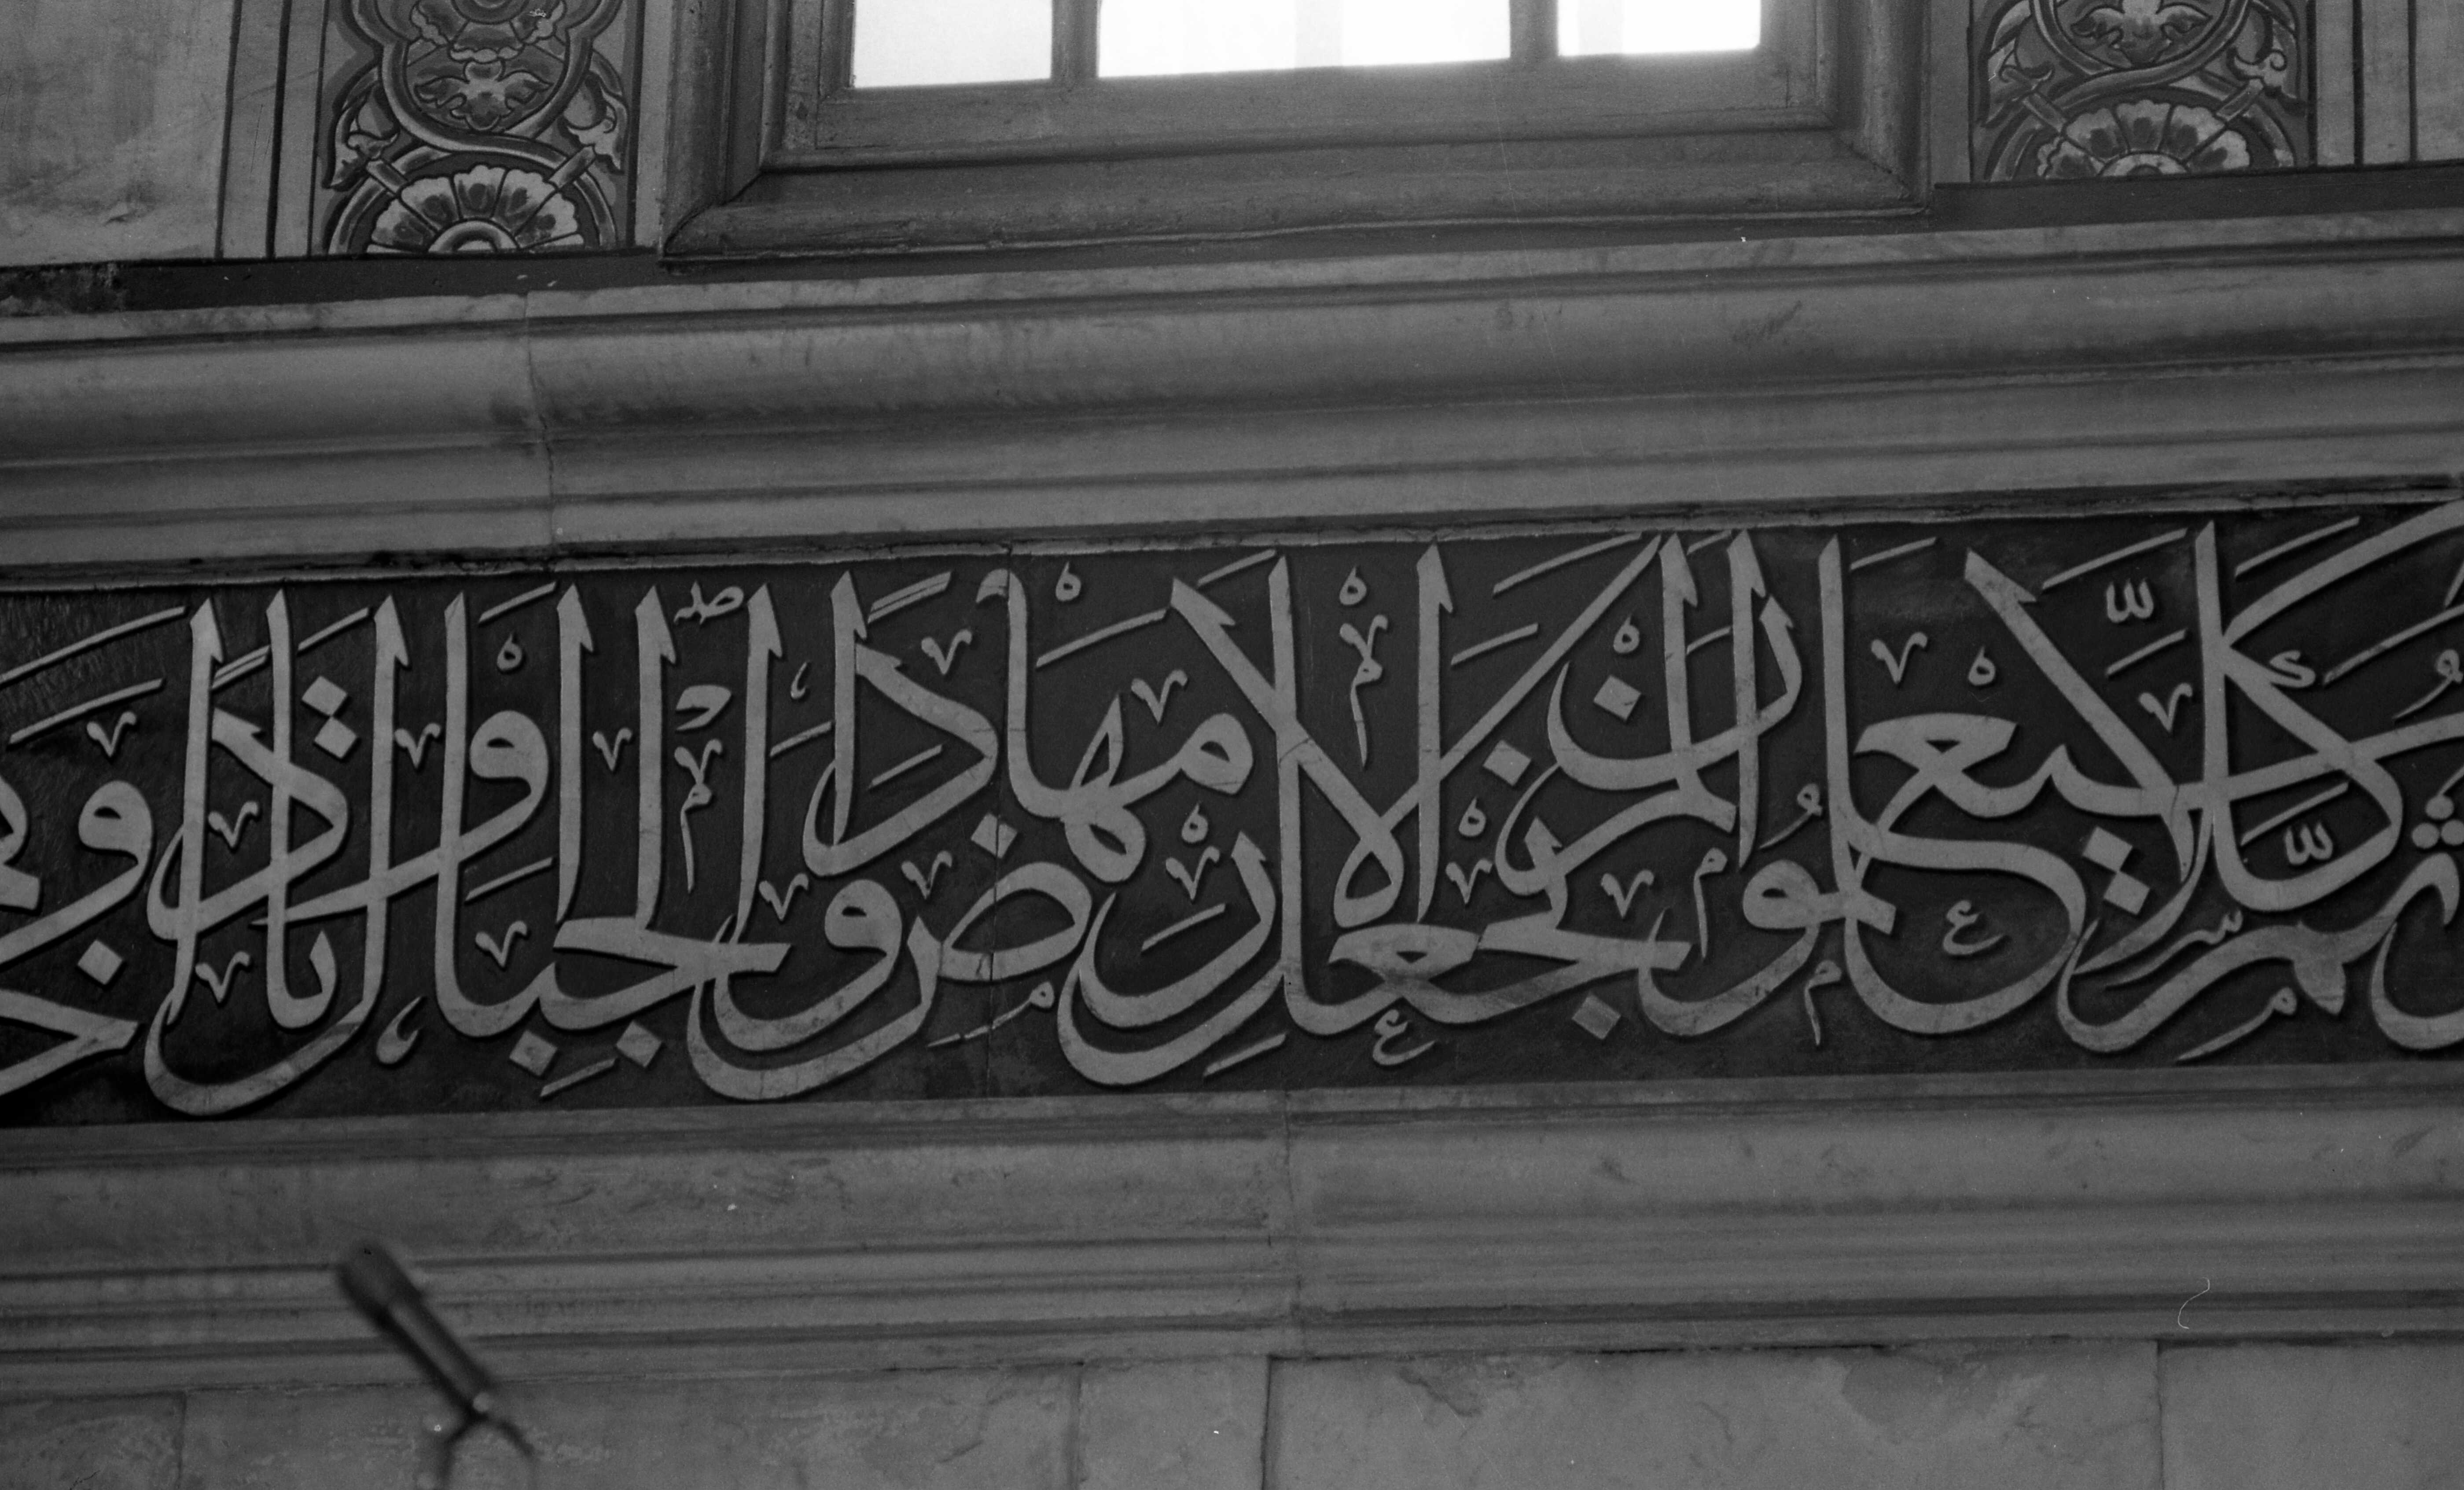 ثم كلا سيعلمون ألم نجعل الأرض مهادا والجبال أوتادا و